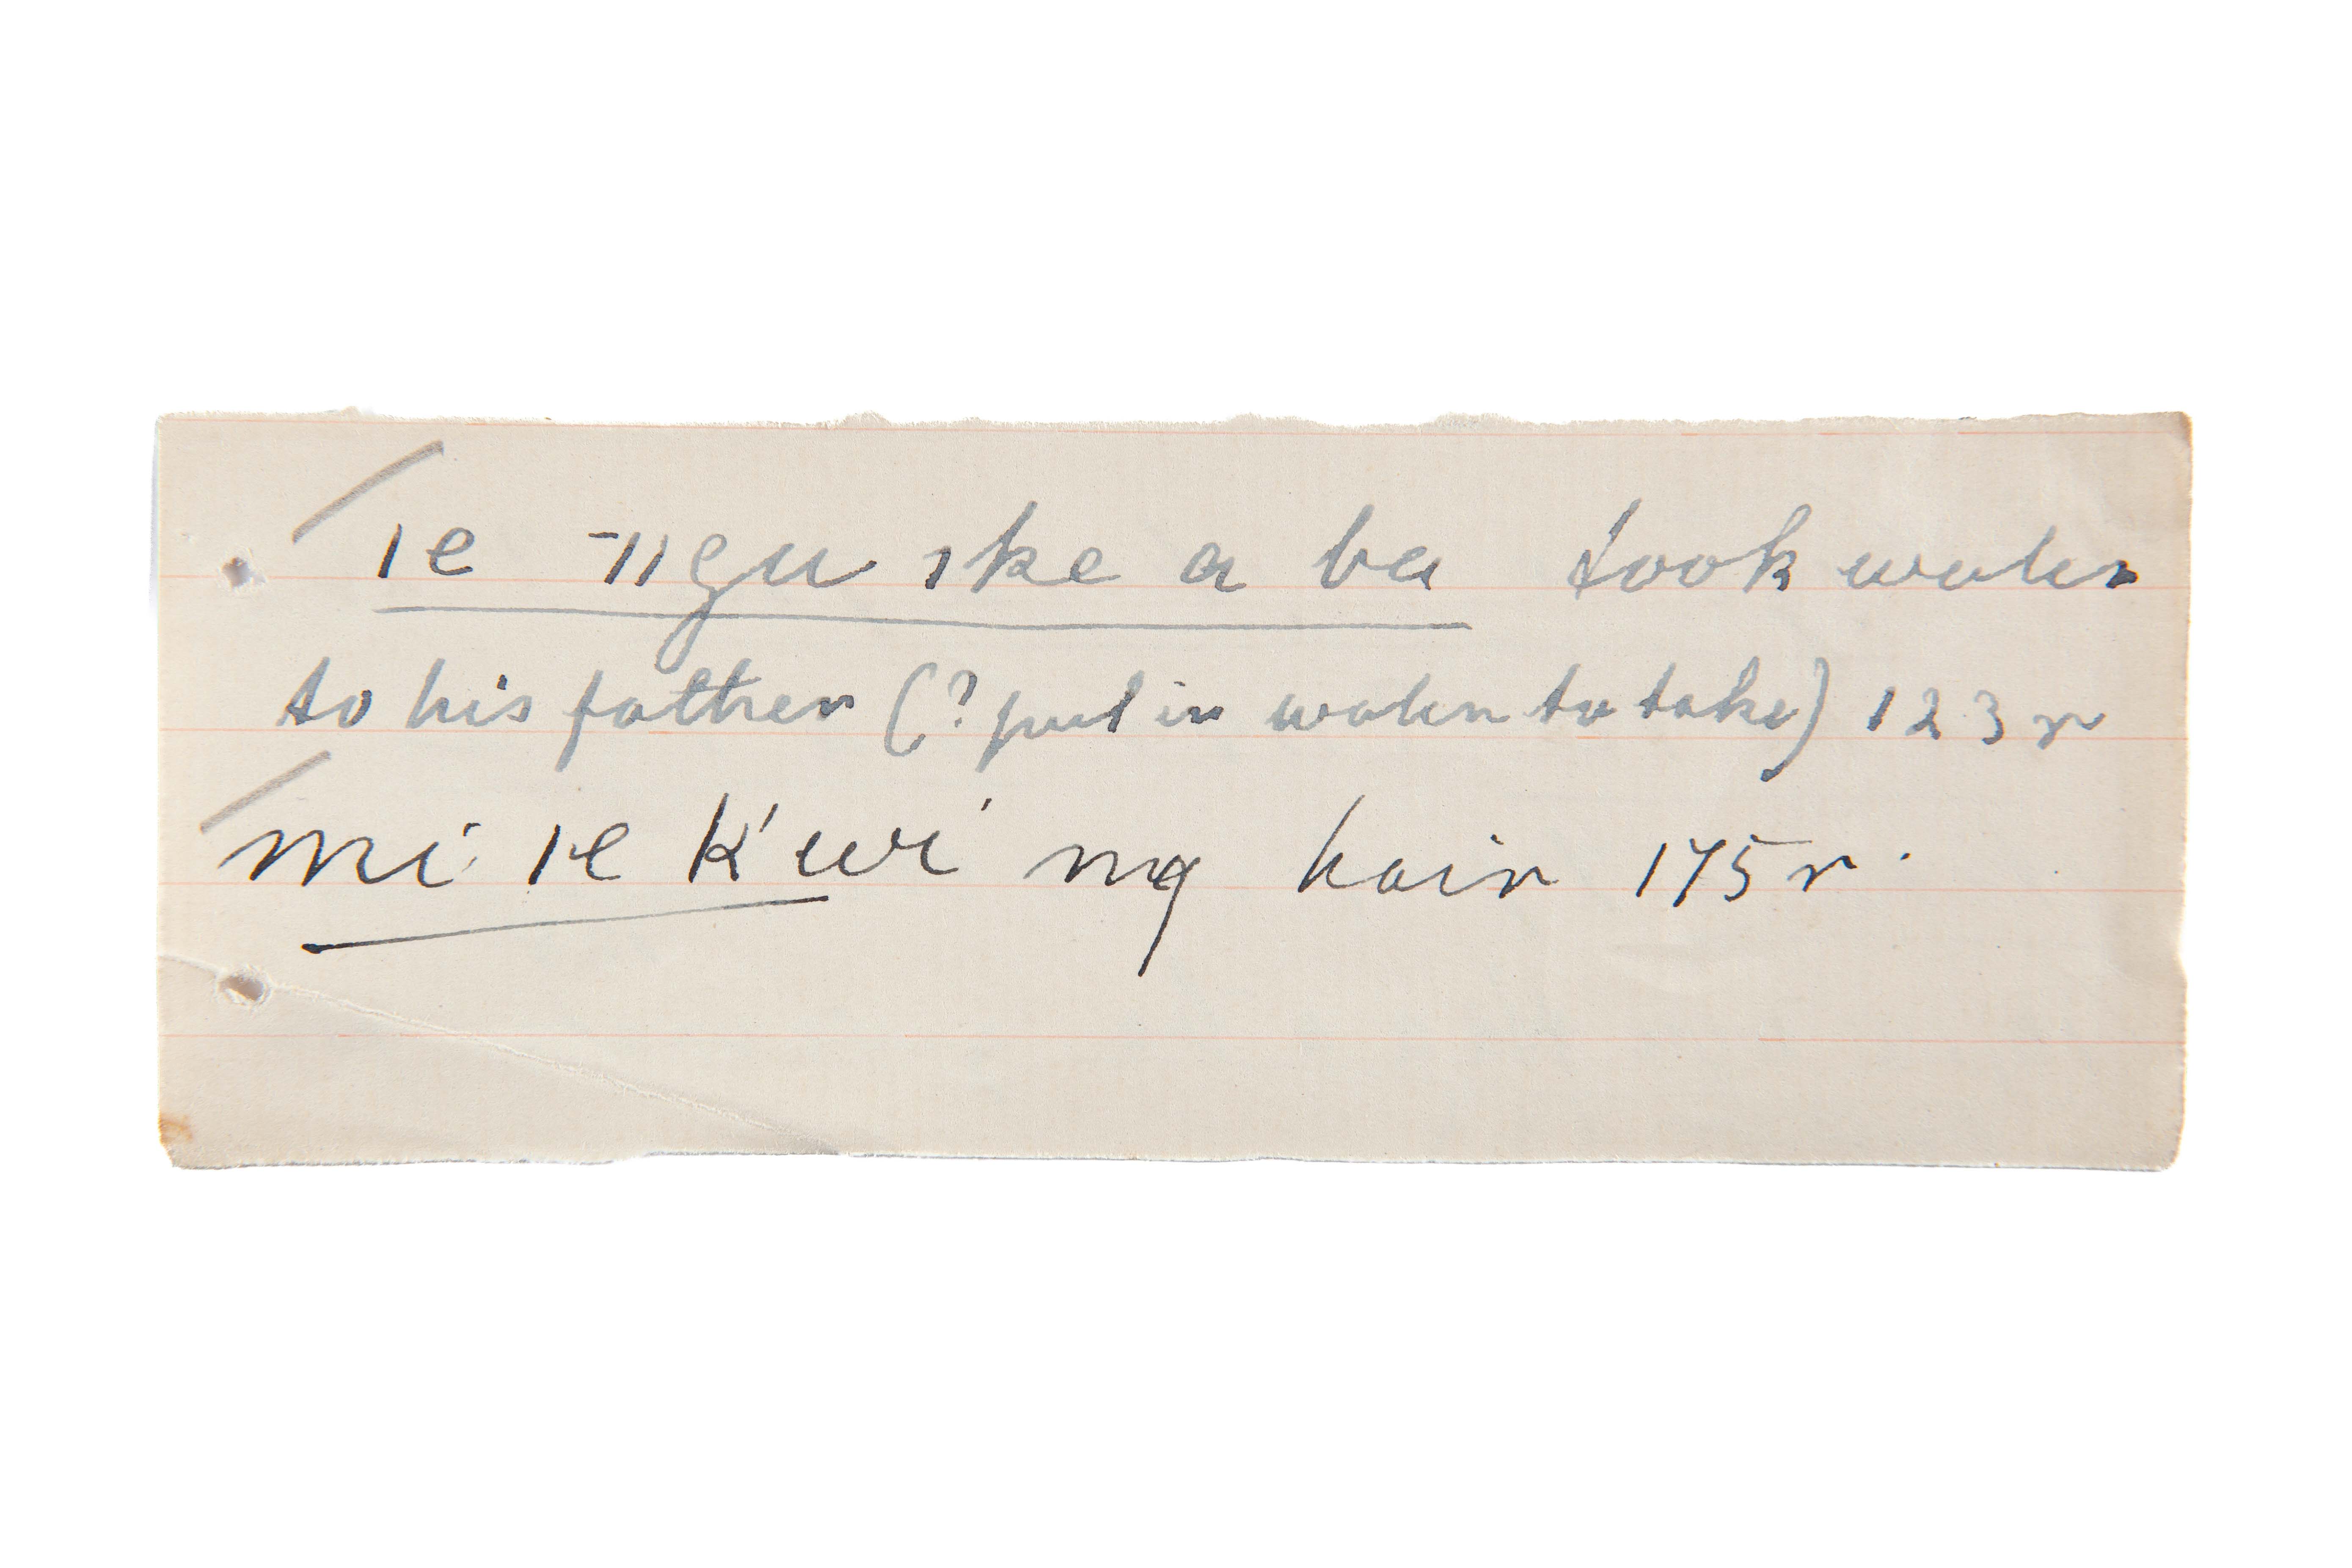 ǀe ⁻ǁgu ǀke a ba took water
to his father (? put in water to take) 123 r
mi ǀe k'wi my hair 175 r.